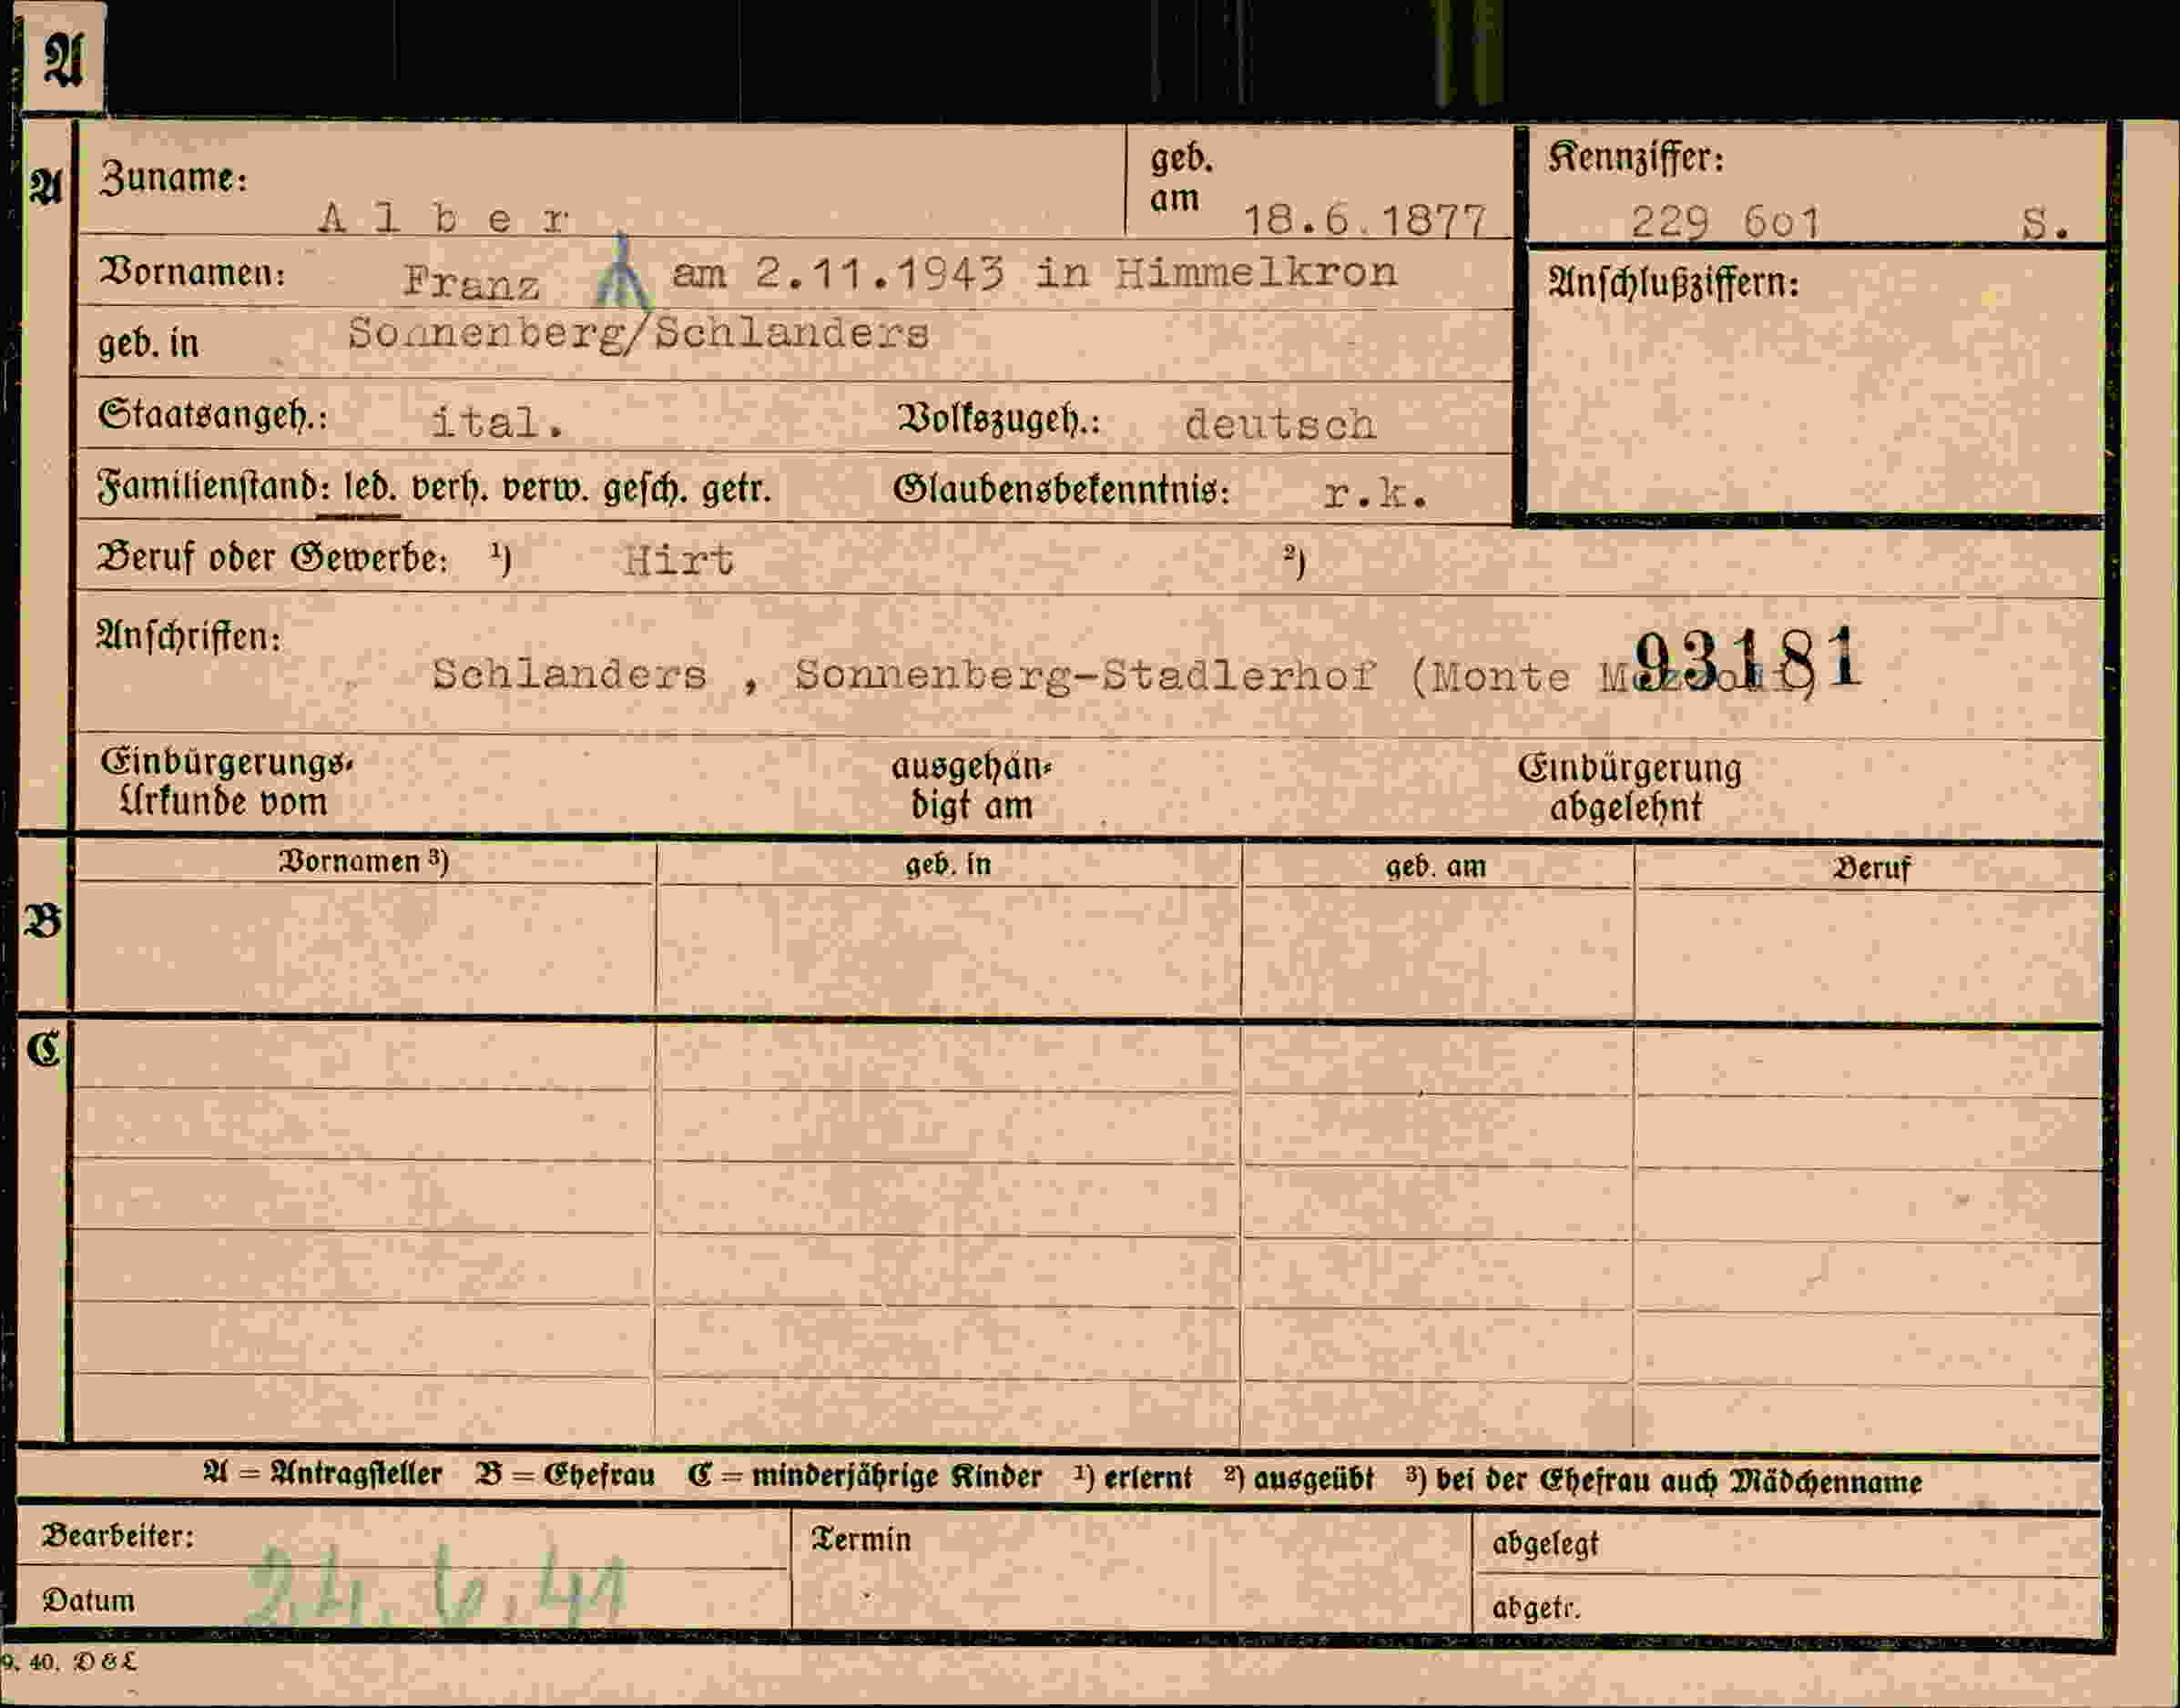 A
A
Zuname: A l b e r
geb. am 18.6.1877
Kennziffer: 229 6o1 S.
Vornamen: Franz am 2.11.1943 in Himmelkron
Anschlußziffern:
geb. in Sonnenberg/Schlanders
Staatsangeh.: ital. Volkszugeh.: deutsch
Familienstand: led. verh. verw. gesch. getr. Glaubensbekenntnis: r.k.
Beruf oder Gewerbe: 1) Hirt 2)
Anschriften:
93181
Schlanders , Sonnenberg-Stadlerhof (Monte
Einbürgerungs- ausgehän- Einbürgerung
Urkunde vom digt am abgelehnt
Vornamen 3) geb. in geb. am Beruf
B
C
A = Antragsteller B = Ehefrau C = minderjährige Kinder 1) erlernt 2) ausgeübt 3) bei der Ehefrau auch Mädchenname
Bearbeiter: Termin abgelegt
Datum 24.6.41 abgetr.
9. 40. D & L